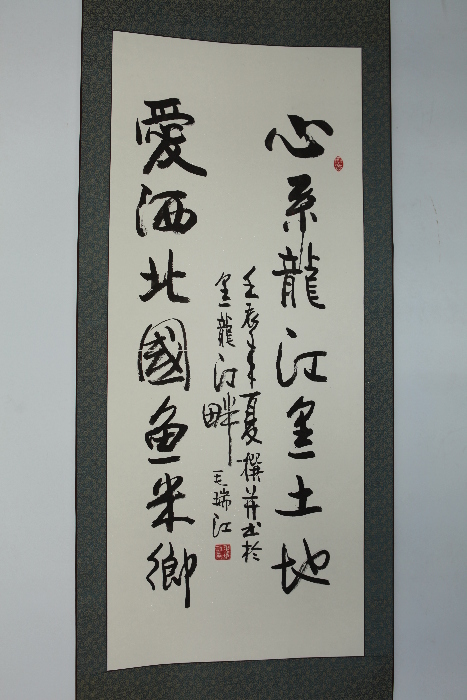 心系龍江黑土地
愛洒北國鱼米鄉
壬辰年夏撰并书於
黑龍江畔 王瑞江